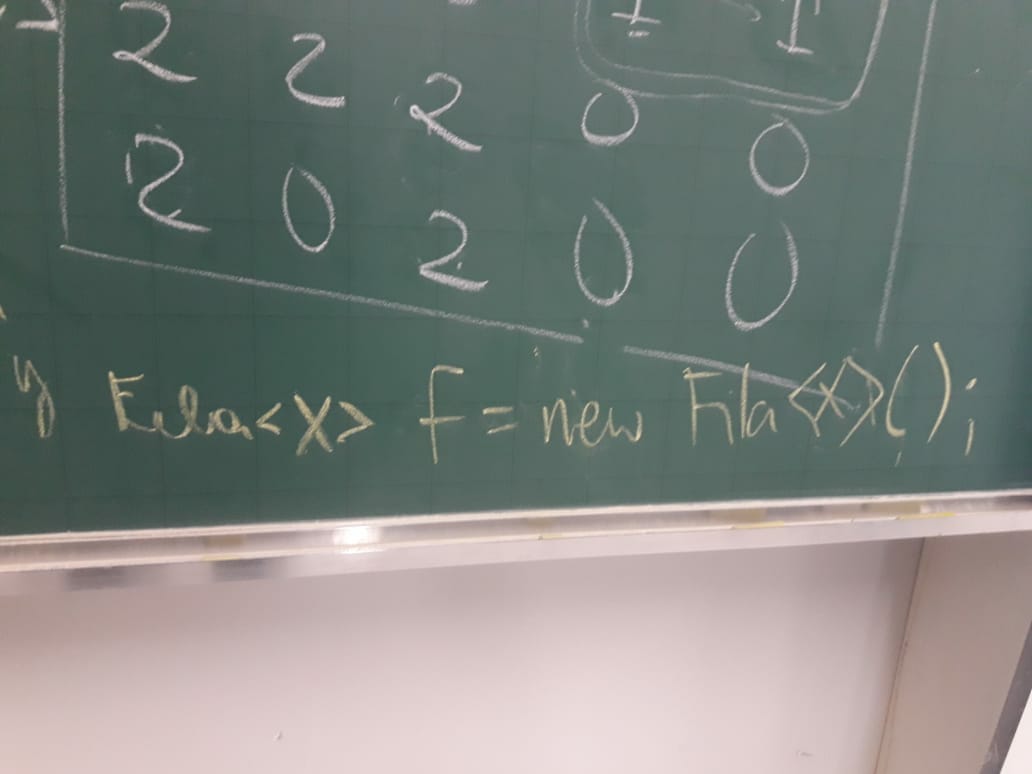 2 2 2 0 0
2 0 2 0 0
y Fila<X> f = new Fila<X>();